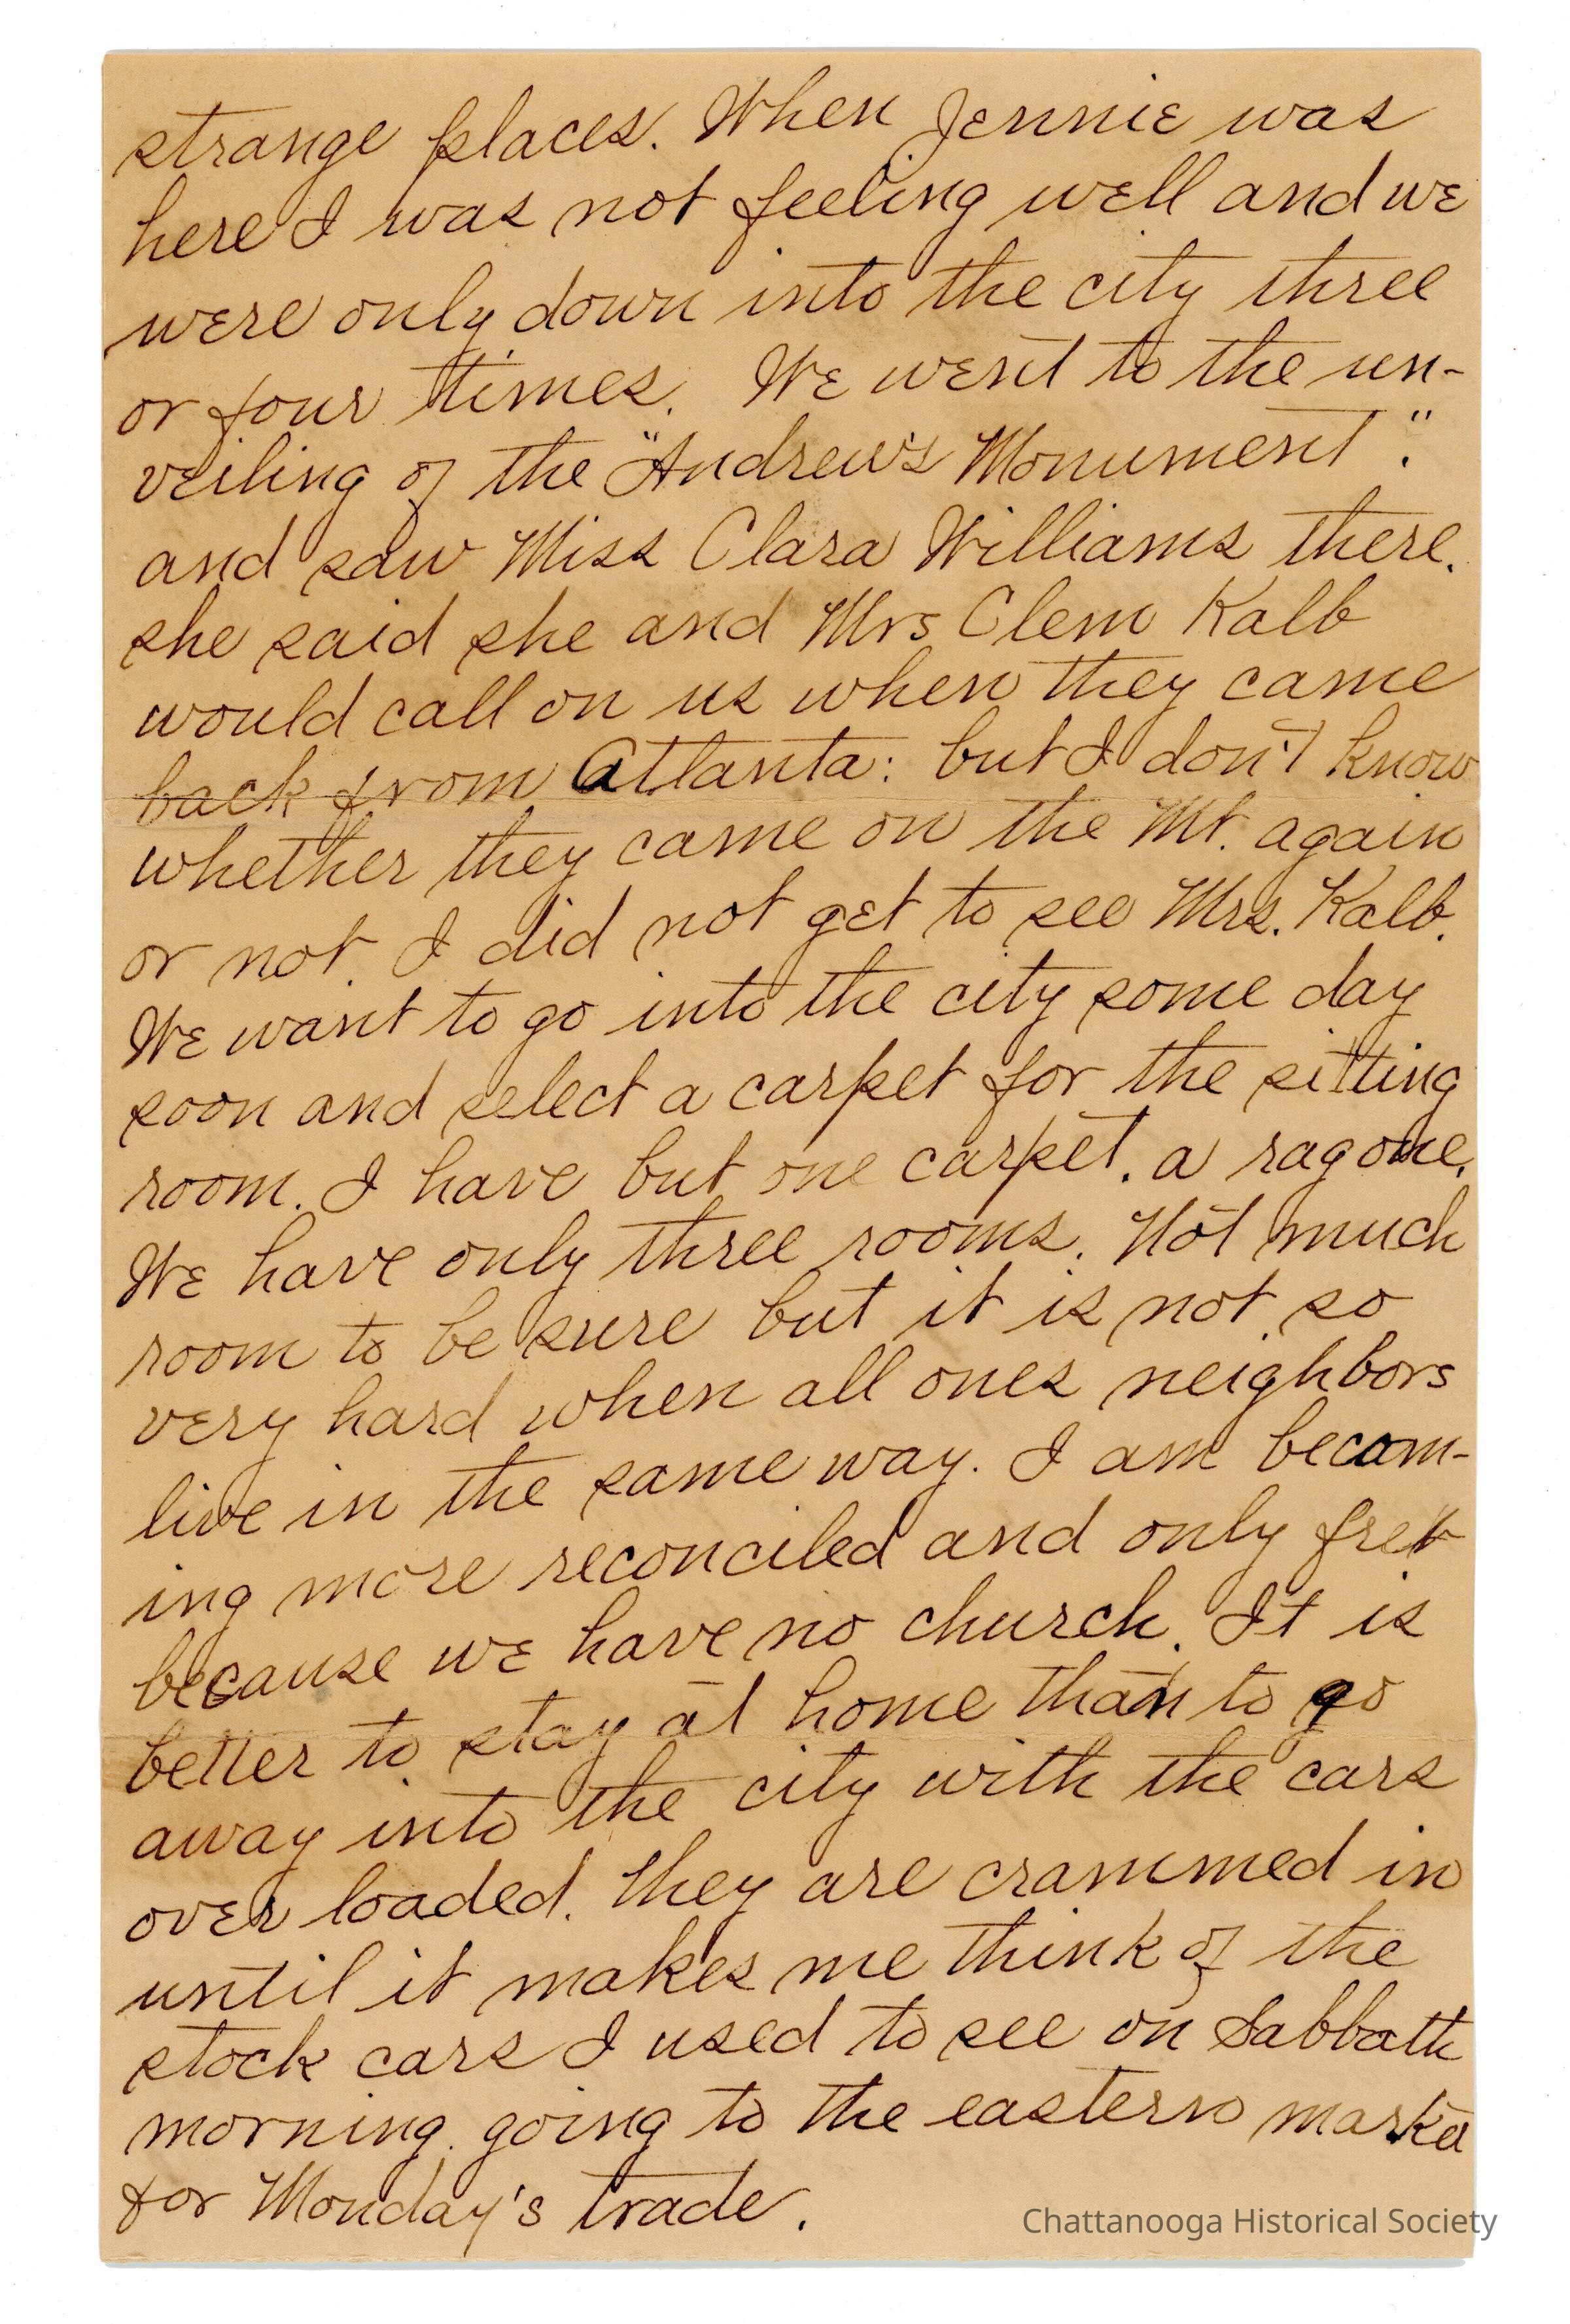 strange places. When Jennie was
here I was not feeling well and we
were only down into the city three
or four times. We went to the un-
veiling of the "Andrew's Monument".
and saw Miss Clara Williams there.
she said she and Mrs Clem Kalb
would call on us when they came
back from Atlanta: but I don't know
whether they came on the Mt. again
or not. I did not get to see Mrs. Kalb.
We want to go into the city some day
soon and select a carpet for the sitting
room. I have but one carpet. a rag one.
We have only three rooms. Not much
room to be sure but it is not so
very hard when all ones neighbors
live in the same way. I am becom-
ing more reconciled and only fret
because we have no church. It is
better to stay at home than to go
away into the city with the cars
over loaded. They are crammed in
until it makes me think of the
stock cars I used to see on Sabbath
morning. going to the eastern market
for Monday's trade.
Chattanooga Historical Society